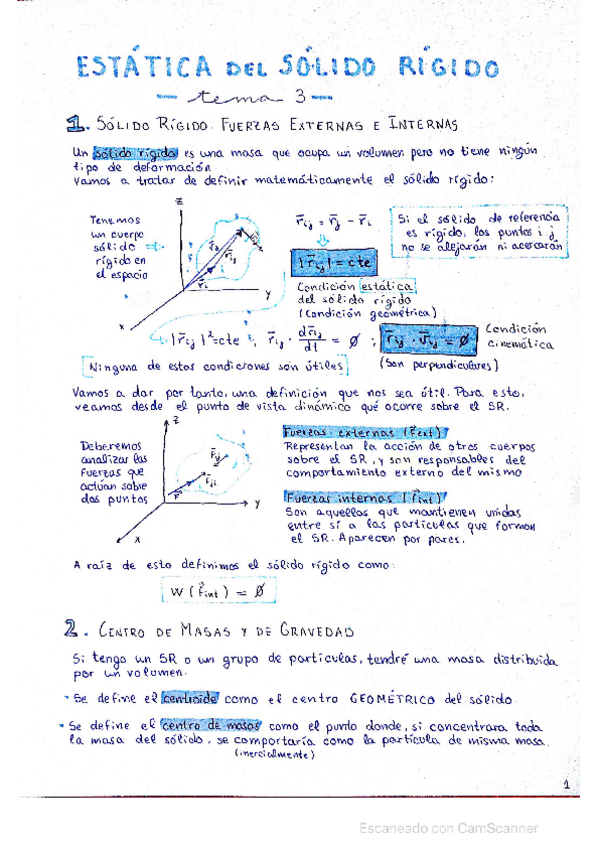 ESTÁTICA DEL SÓLIDO RÍGIDO
— tema 3 —
1. SÓLIDO RÍGIDO. FUERZAS EXTERNAS E INTERNAS
Un sólido rígido es una masa que ocupa un volumen pero no tiene ningún
tipo de deformación.
Vamos a tratar de definir matemáticamente el sólido rígido:
Tenemos
un cuerpo
sólido
rígido en
el espacio
z
y
x
r̄ij = r̄j - r̄i
|r̄ij| = cte
Condición estática
del sólido rígido
(Condición geométrica)
Si el sólido de referencia
es rígido, los puntos i j
no se alejarán ni acercarán
|r̄ij|² = cte ; r̄ij · dr̄ij/dt = Ø ; r̄ij · v̄ij = Ø
Condición
cinemática
(Son perpendiculares)
Ninguna de estas condiciones son útiles
Vamos a dar, por tanto, una definición que nos sea útil. Para esto,
veamos desde el punto de vista dinámico qué ocurre sobre el SR.
Deberemos
analizar las
fuerzas que
actúan sobre
dos puntos
z
y
x
Fij
Fji
Fuerzas externas (F̄ext)
Representan la acción de otros cuerpos
sobre el SR, y son responsables del
comportamiento externo del mismo
Fuerzas internas (F̄int)
Son aquellas que mantienen unidas
entre sí a las partículas que forman
el SR. Aparecen por pares.
A raíz de esto definimos el sólido rígido como:
W (F̄int) = Ø
2. CENTRO DE MASAS Y DE GRAVEDAD
Si tengo un SR o un grupo de partículas, tendré una masa distribuida
por un volumen.
• Se define el centroide como el centro GEOMÉTRICO del sólido
• Se define el centro de masas como el punto donde, si concentrara toda
la masa del sólido, se comportaría como la partícula de misma masa.
(inercialmente)
1
Escaneado con CamScanner